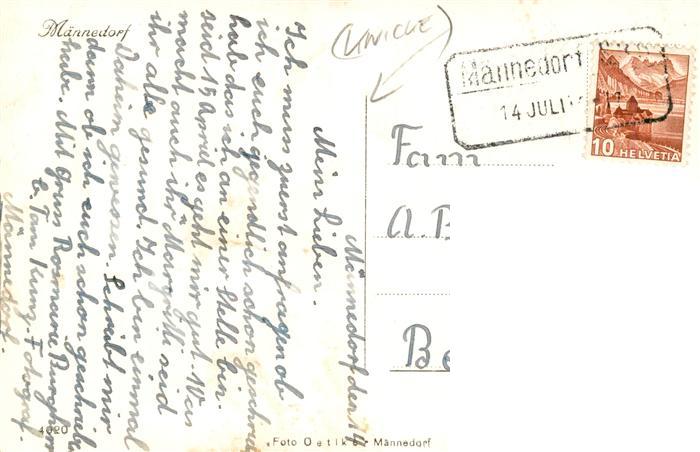 Männedorf
Männedorf den 14
Mein Lieben.
Ich muss zuerst anfragen ob
ich euch eigendlich schon geschrie
hab das ich an einer Stelle bin.
seid 15 April es geht mir gut. Was
macht auch ihr Margritli seid
ihr alle gesund. Ich bin einmal
Daheim gewesen. Schreibt mir
dann ob ich euch schon geschrieb
habe. Mit Gruss Rosmarie Burgherr
b. Fam Kunz. Fotograf.
Männedorf.
4020
Foto Oetiker Männedorf
Männedorf
14 JULI
10 HELVETIA
Fam
A. B
Be